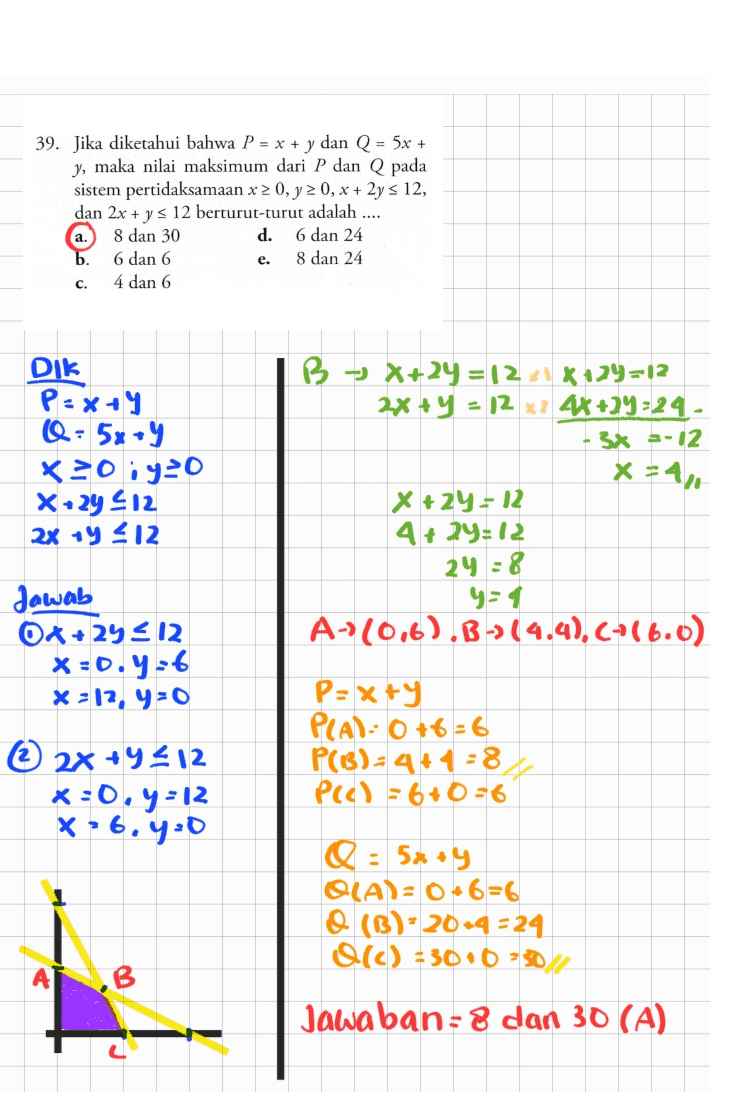 39. Jika diketahui bahwa P = x + y dan Q = 5x +
y, maka nilai maksimum dari P dan Q pada
sistem pertidaksamaan x ≥ 0, y ≥ 0, x + 2y ≤ 12,
dan 2x + y ≤ 12 berturut-turut adalah ....
a. 8 dan 30 d. 6 dan 24
b. 6 dan 6 e. 8 dan 24
c. 4 dan 6
Dik
P = x + y
Q = 5x + y
x ≥ 0 ; y ≥ 0
x + 2y ≤ 12
2x + y ≤ 12
Jawab
① x + 2y ≤ 12
x = 0, y = 6
x = 12, y = 0
② 2x + y ≤ 12
x = 0, y = 12
x = 6, y = 0
A
B
C
B → x + 2y = 12 x1 x + 2y = 12
2x + y = 12 x2 4x + 2y = 24 -
-3x = -12
x = 4 //
x + 2y = 12
4 + 2y = 12
2y = 8
y = 4
A → (0,6), B → (4,4), C → (6,0)
P = x + y
P(A) = 0 + 6 = 6
P(B) = 4 + 4 = 8 //
P(C) = 6 + 0 = 6
Q = 5x + y
Q(A) = 0 + 6 = 6
Q(B) = 20 + 4 = 24
Q(C) = 30 + 0 = 30 //
Jawaban = 8 dan 30 (A)